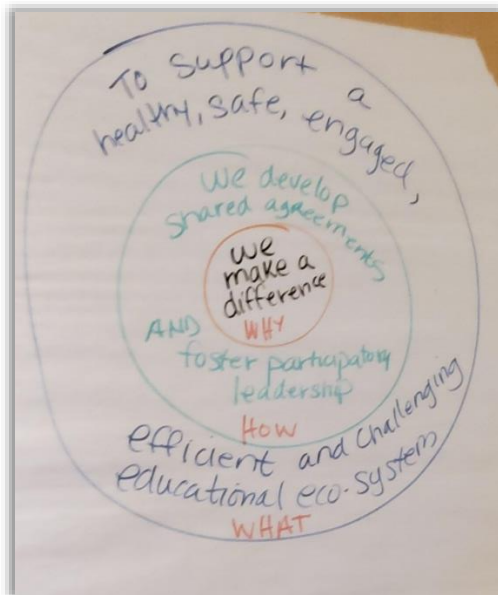 To support a
healthy, safe, engaged,
We develop
shared agreements
we
make a
difference
WHY
AND
foster participatory
leadership
HOW
efficient and challenging
educational eco-system
WHAT